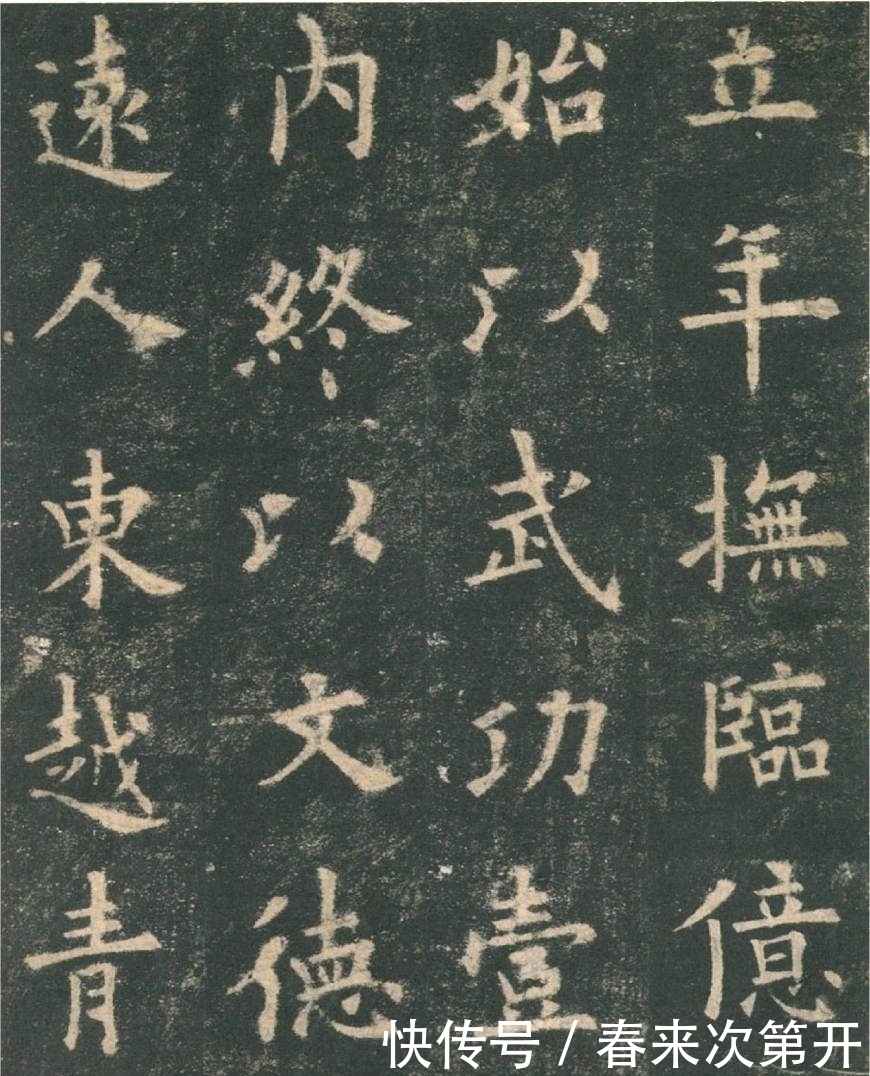 立年撫臨億
始以武功壹
内終以文德
遠人東越青
快传号 / 春来次第开